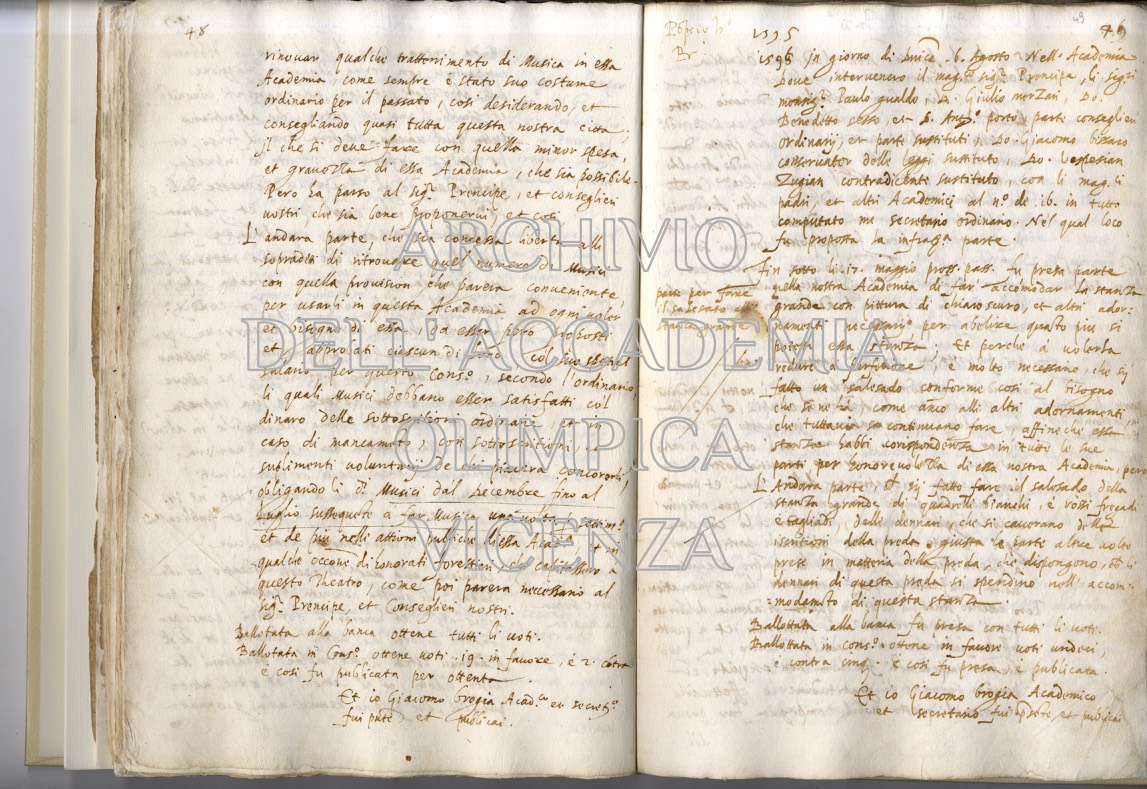 48
rinovar qualche trattenimento di Musica in essa
Academia, come sempre è stato suo costume
ordinario per il passato, così desiderando, et
consegliando quasi tutta questa nostra città,
Il che si deve fare con quella minor spesa,
et gravezza di essa Academia, che sia possibile.
Però ha parso al sigr. Prencipe, et conseglieri
nostri, che sia bene proponervi, et così
L'andarà parte, che sia concessa libertà alli
sopraditti di ritrovare quel numero di Musici
con quella provision che parerà conveniente,
per usarli in questa Academia ad ogni voler
et bisogno di essa, da esser però proposti
et approbati ciascun di loro col suo
salario per questo Cons.o, secondo l'ordinario,
li quali Musici debbano esser satisfatti col
dinaro delle sottoscritioni ordinarie et in
caso di mancamento, con sottoscritioni, et
suplimenti voluntarij de cui piacerà concorerli,
obligando li di Musici dal Decembre fino al
Luglio susseguete a far Musica una volta
et de più nelli attioni publiche di essa Acada. et in
qualche occone. di honorati forestieri, che capitassero a
questo Theatro, come poi parerà necessario al
sigr. Prencipe, et Conseglieri nostri.
Ballotata alla banca ottene tutti li voti.
Ballotata in Cons.o ottene voti .19. in favore, è 2. cótra
e così fu publicata per ottenta
Et io Giacomo brogia Acad.co et secret.o
fui pnte et publicai.
49
1595
1595 In giorno di 6. Agosto Nell'Academia
Dove intervenero il mag.co sigr. Prencipe, li sigri
monsigr. Paulo gualdo, D. Giulio merzari, Do.
Benedetto sesso et S. Ant.o porto parte conseglieri
ordinarij, et parte sustituti, Do. Giacomo bissaro
conservator delle leggi sustituto, Do. Vespesian
Zugian contradicente sustituto, con li mag.ci
padri, et altri Academici al n.o de .16. in tutto
computato me secretario ordinario. Nel qual loco
fu proposta la infrasta parte.
parte per forne
il salesato alla
stanza grande
Fin sotto li .17. maggio pross. pass. fu presa parte
nella nostra Academia di far accomodar la stanza
grande con pittura di chiaro scuro, et altri ador:
namenti necessarij per abelire quanto più si
potesse essa stanza. Et perchè a volerla
redure a perfetione, è molto necessario, che sij
fatto un salesado conforme così al bisogno
che se ne ha, come anco alli altri adornamenti
che tuttavia se continuano fare, affine che essa
stanza habbi corispondenza in tutte le sue
parti, per honorevolezza di essa nostra Academia, però
L'Andarà parte, che sij fatto fare il salesado della
stanza grande di quadrelli bianchi, è rossi fregadi
e tagliadi, delli dennari, che si caverano della
iscritioni della preda, giusta le parte altre volte
prese in matteria della preda, che dispongono, che li
dennari di questa preda si spendino nell'accom:
modamto di questa stanza.
Ballottata alla banca fu presa con tutti li voti.
Ballottata in cons.o ottene in favore voti undeci,
è contra cinq. e così fu presa è publicata.
Et io Giacomo brogia Academico
et secretario fui psete, et publicai
ARCHIVIO
DELL'ACCADEMIA
OLIMPICA
VICENZA